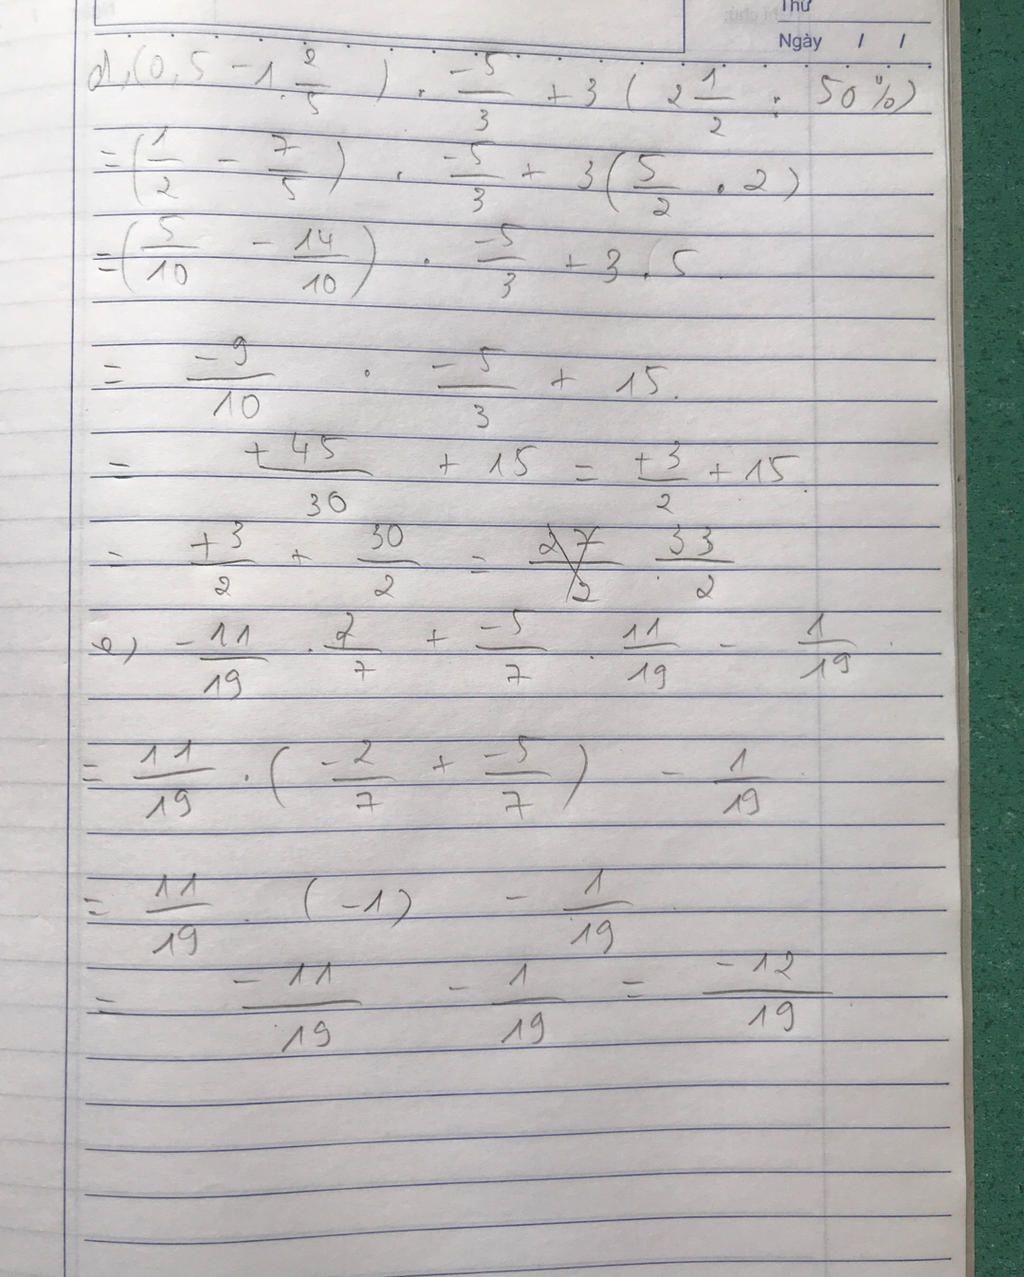 Thứ
Ngày / /
d, (0,5 - 1 2/5) . -5/3 + 3 (2 1/2 : 50%)
= (1/2 - 7/5) . -5/3 + 3 (5/2 . 2)
= (5/10 - 14/10) . -5/3 + 3 . 5
= -9/10 . -5/3 + 15.
= +45/30 + 15 = +3/2 + 15.
= +3/2 + 30/2 = 27/2 33/2
e) -11/19 . 2/7 + -5/7 . 11/19 - 1/19
= 11/19 . (-2/7 + -5/7) - 1/19
= 11/19 . (-1) - 1/19
= -11/19 - 1/19 = -12/19